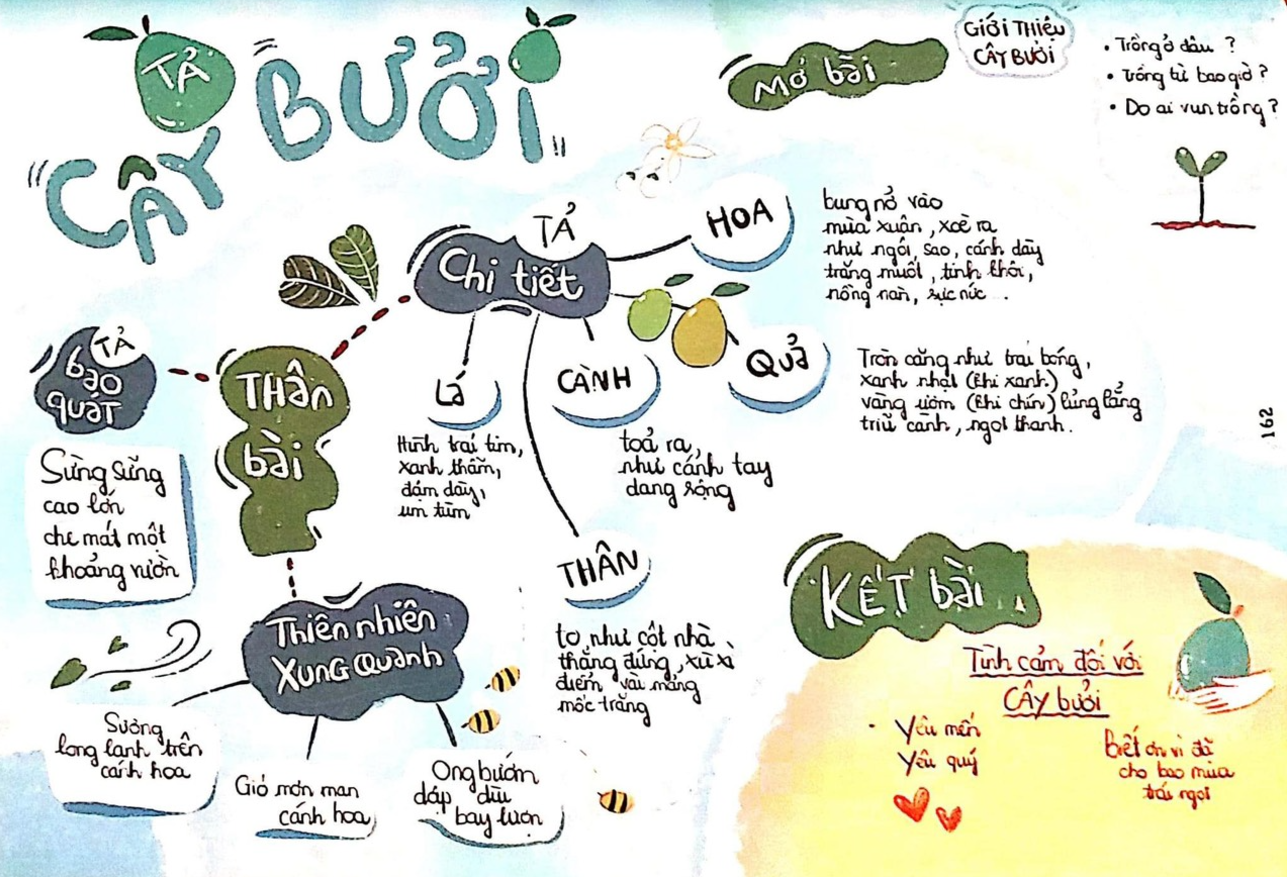 TẢ
CÂY BƯỞI
Mở bài
GIỚI THIỆU
CÂY BƯỞI
• Trồng ở đâu ?
• trồng từ bao giờ ?
• Do ai vun trồng ?
TẢ
Chi tiết
HOA
bung nở vào
mùa xuân, xoè ra
như ngôi sao, cánh dày
trắng muốt, tinh khôi,
nồng nàn, sực nức ...
QUẢ
Tròn căng như trái bóng,
xanh nhạt (khi xanh)
vàng ươm (khi chín) lủng lẳng
trĩu cành, ngọt thanh.
CÀNH
toả ra,
như cánh tay
dang rộng
Lá
Hình trái tim,
xanh thẫm,
đậm dày,
um tùm
THÂN
to như cột nhà
thẳng đứng, xù xì
điểm vài mảng
mốc trắng
THÂN
bài
TẢ
bao
quát
Sừng sững
cao lớn
che mát một
khoảng vườn
Thiên nhiên
XUNG QUANH
Sương
long lanh trên
cánh hoa
Gió mơn man
cánh hoa
Ong bướm
dập dìu
bay lượn
KẾT bài
Tình cảm đối với
CÂY bưởi
• Yêu mến
Yêu quý
Biết ơn vì đã
cho bao mùa
trái ngọt
162